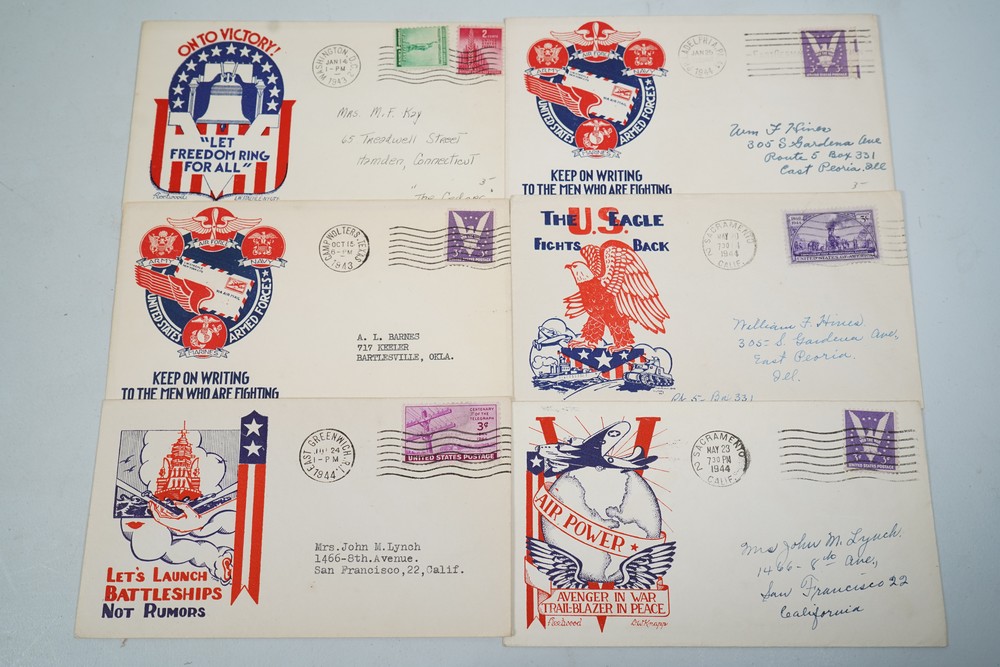 ON TO VICTORY!
"LET
FREEDOM RING
FOR ALL"
Fleetwood
WASHINGTON, D.C.
JAN 14
1-PM
1943
2 CENTS
Mrs. M. F. Kay
65 Treadwell Street
Hamden, Connecticut
AIR FORCE
ARMY
NAVY
VIA AIR MAIL
UNITED STATES
ARMED FORCES
MARINES
KEEP ON WRITING
TO THE MEN WHO ARE FIGHTING
1944
Wm F Hines
305 S Gardena Ave
Route 5 Box 331
East Peoria, Ill
AIR FORCE
ARMY
NAVY
VIA AIR MAIL
UNITED STATES
ARMED FORCES
MARINES
KEEP ON WRITING
TO THE MEN WHO ARE FIGHTING
CAMP WOLTERS, TEXAS
OCT 15
1943
A. L. BARNES
717 KEELER
BARTLESVILLE, OKLA.
THE U.S. EAGLE
FIGHTS BACK
SACRAMENTO
1944
CALIF.
William F. Hines
305- S. Gardena Ave,
East Peoria
Ill.
Rt. 5- Box 331
LET'S LAUNCH
BATTLESHIPS
NOT RUMORS
EAST GREENWICH, R.I.
24
1-PM
1944
CENTENARY
OF THE
TELEGRAPH
3¢
UNITED STATES POSTAGE
Mrs. John M. Lynch
1466-8th. Avenue.
San Francisco, 22, Calif.
AIR POWER
AVENGER IN WAR
TRAIL-BLAZER IN PEACE
Fleetwood
D.W. Knapp
2 SACRAMENTO
MAY 23
7:30 PM
1944
CALIF.
Mrs John M. Lynch.
1466- 8th Ave.,
San Francisco 22
California